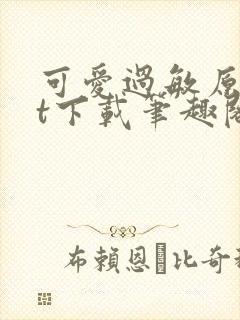 可愛過敏原
t下載筆趣閣
布賴恩·比奇